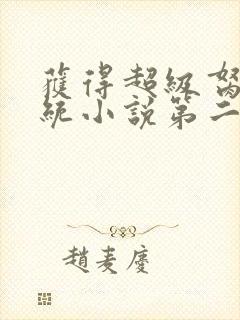 獲得超級
統小說第二
趙麦慶